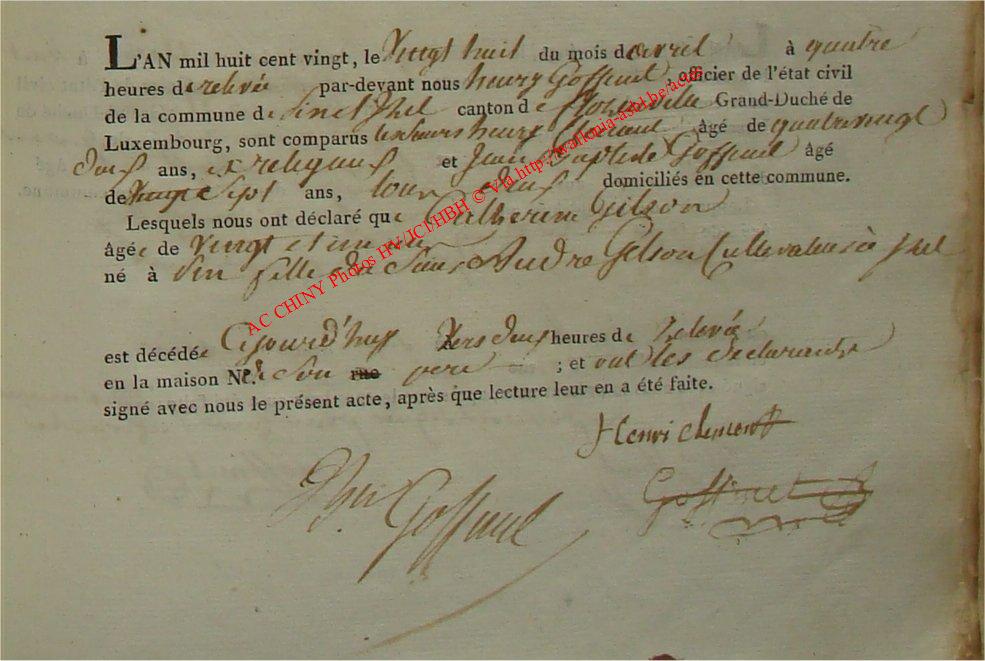 L'AN mil huit cent vingt, le Vingt huit du mois de avril à quatre
heures de relevée par-devant nous henry Goffinet officier de l'état civil
de la commune de canton de florenville Grand-Duché de
Luxembourg, sont comparus henry Clement âgé de quatrevingt
deux ans, ex religieux et Jean Baptiste Goffinet âgé
de vingt sept ans, tous deux domiciliés en cette commune.
Lesquels nous ont déclaré que Catherine Gilson
âgée de vingt et un ans
né à fille de André Gilson Cultivateur à
est décédée cejourd'huy vers deux heures de relevée
en la maison No. de Son rue pere ; et ont les declarants
signé avec nous le présent acte, après que lecture leur en a été faite.
Henri clement
Goffinet
Goffinet
AC CHINY Photos HV/JCl/HBH © Via http://wallonia-asbl.be/acar